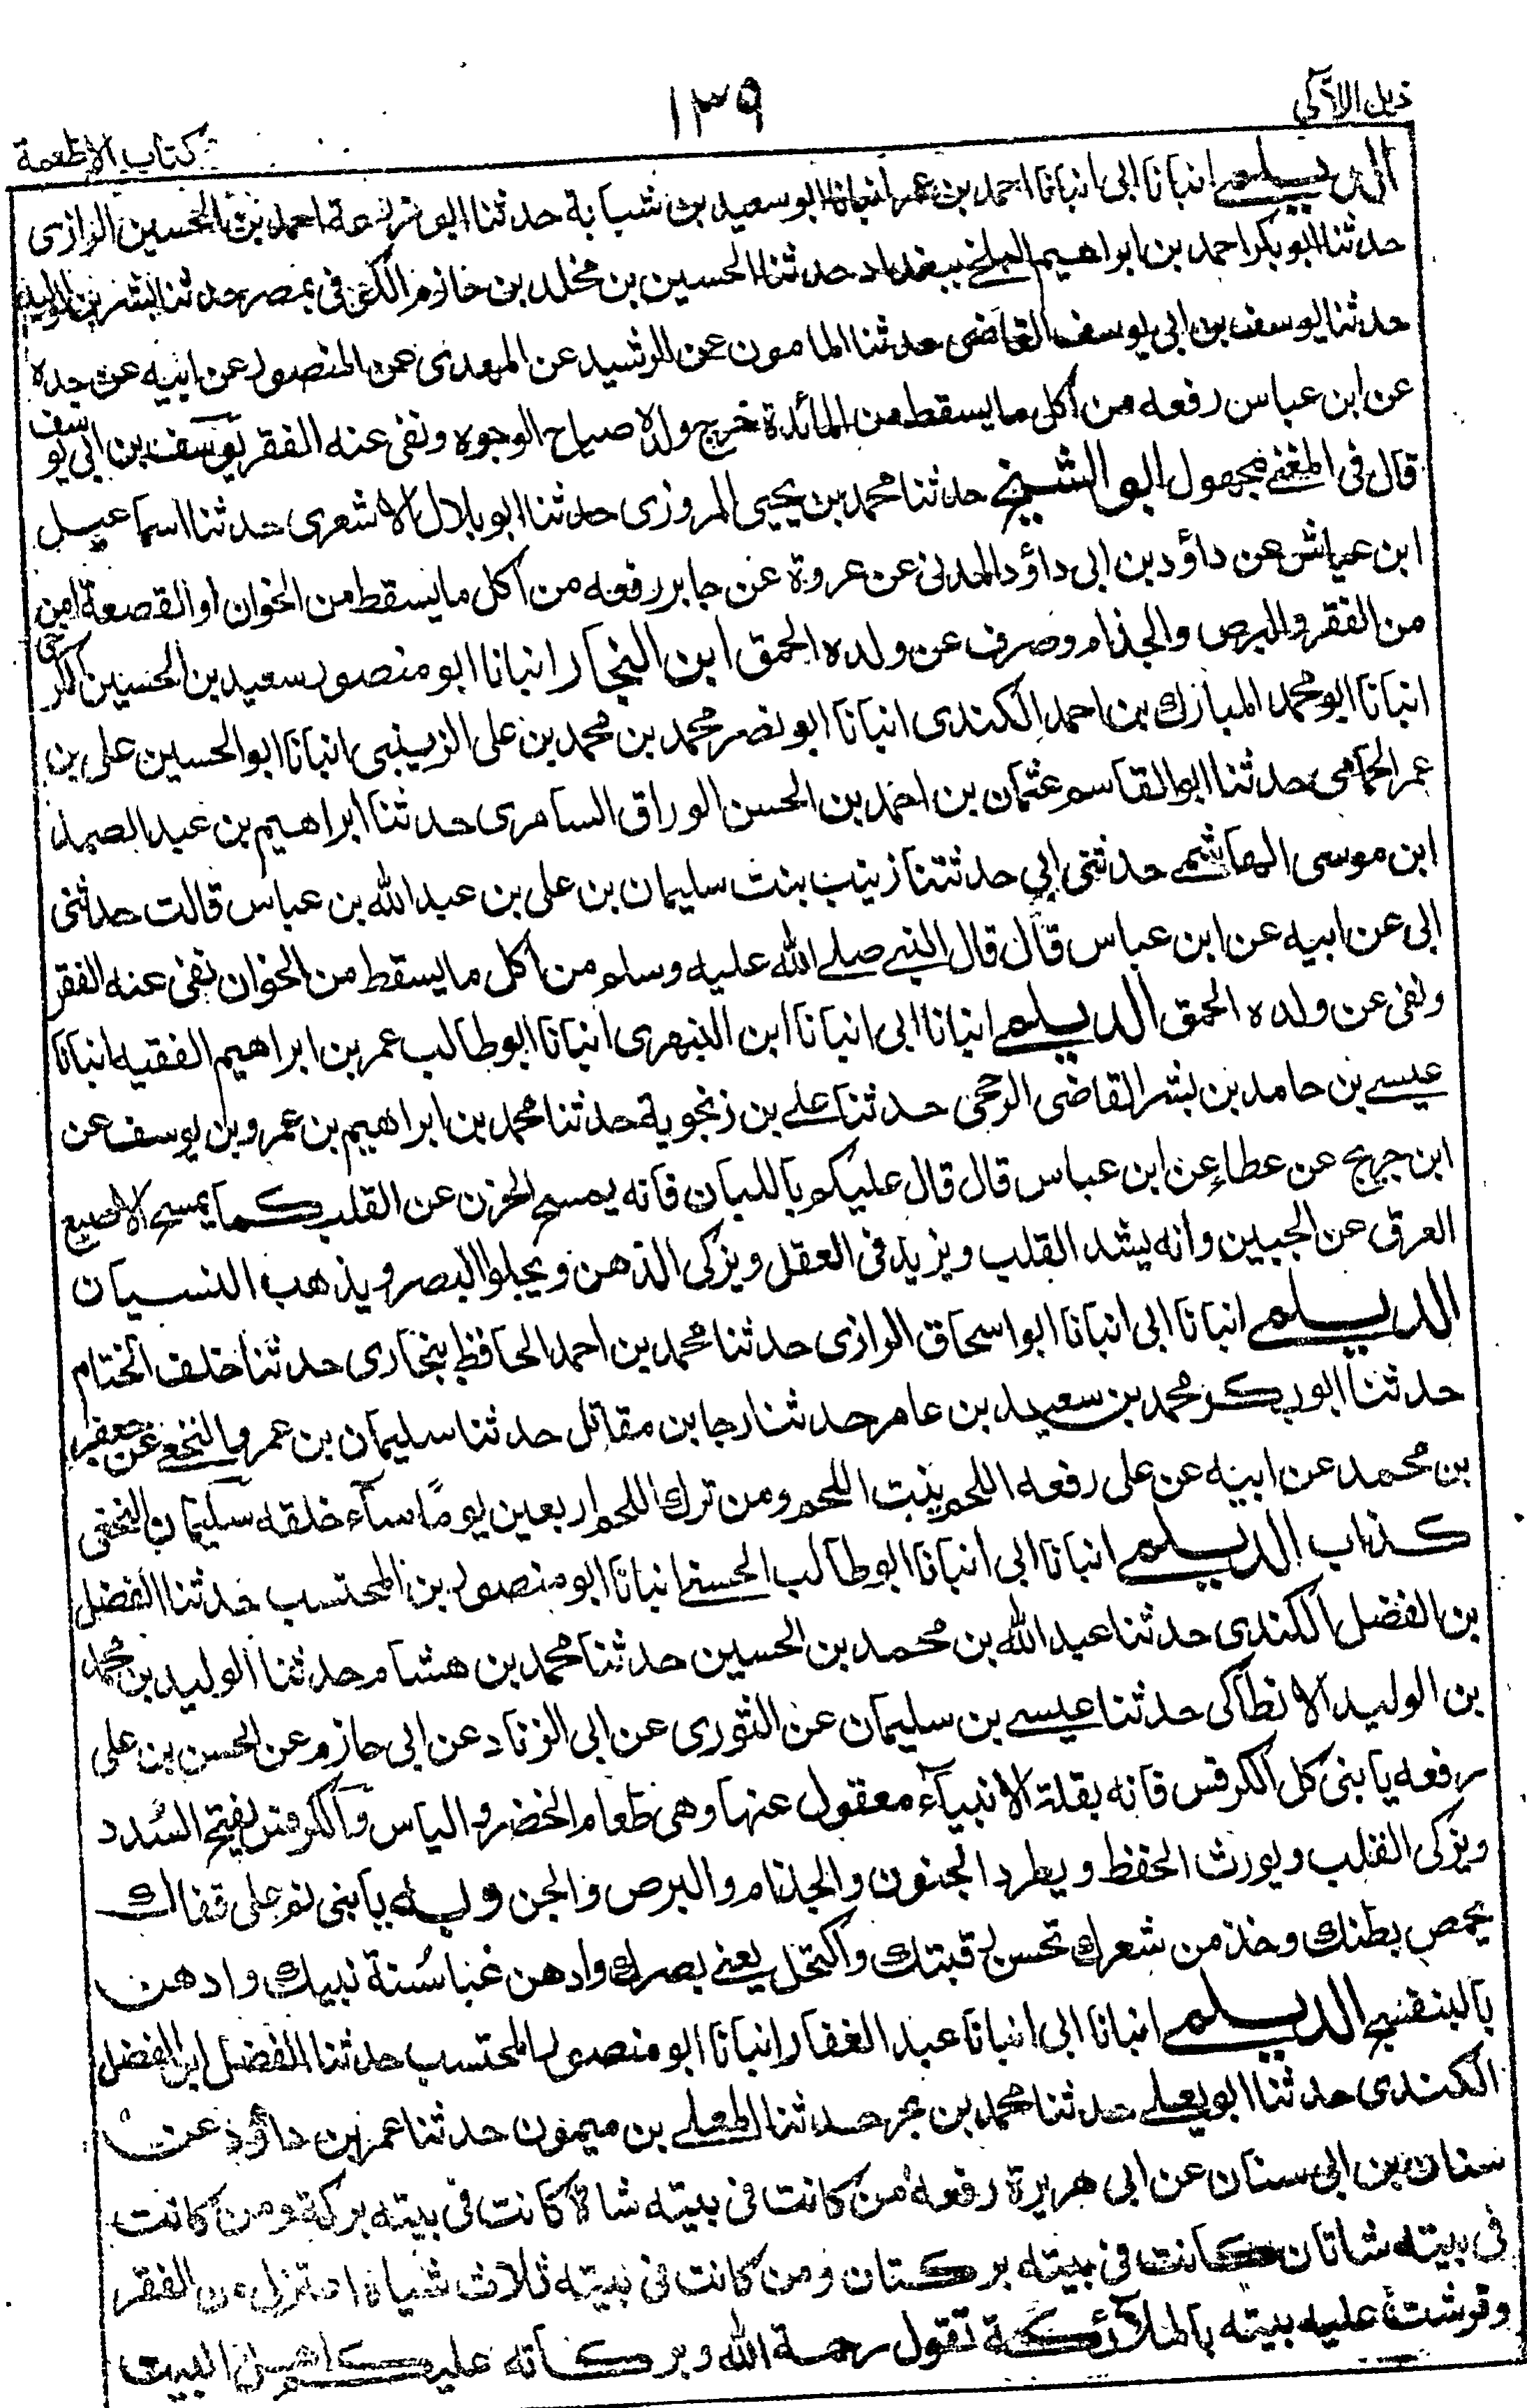 ذيل اللآلي
١٣٩
كتاب الاطعمة
الديلمى انبانا ابى انبانا احمد بن عمر انبانا ابو سعيد بن شبابة حدثنا ابو زرعة احمد بن الحسين الرازى
حدثنا ابو بكر احمد بن ابراهيم البلخى ببغداد حدثنا الحسين بن مخلد بن خازم الكوفى بمصر حدثنا بشر بن الوليد
حدثنا يوسف بن ابى يوسف القاضى حدثنا المامون عن الرشيد عن المهدى عن المنصور عن ابيه عن جده
عن ابن عباس رفعه من اكل ما يسقط من المائدة خرج ولده صباح الوجوه ونفى عنه الفقر يوسف بن ابى يوسف
قال فى المغنى مجهول ابو الشيخ حدثنا محمد بن يحيى المروزى حدثنا ابو بلال الاشعرى حدثنا اسماعيل
ابن عياش عن داؤد بن ابى داؤد المدنى عن عروة عن جابر رفعه من اكل ما يسقط من الخوان او القصعة امن
من الفقر والبرص والجذام وصرف عن ولده الحمق ابن النجار انبانا ابو منصور سعيد بن الحسين الكرخى
انبانا ابو محمد المبارك بن احمد الكندى انبانا ابو نصر محمد بن محمد بن على الزينبى انبانا ابو الحسين على بن
عمر الحمامى حدثنا ابو القاسم عثمان بن احمد بن الحسن الوراق السامرى حدثنا ابراهيم بن عبد الصمد
ابن موسى الهاشمى حدثنى ابى حدثتنا زينب بنت سليمان بن على بن عبد الله بن عباس قالت حدثنى
ابى عن ابيه عن ابن عباس قال قال النبى صلى الله عليه وسلم من اكل ما يسقط من الخوان نفى عنه الفقر
ونفى عن ولده الحمق الديلمى انبانا ابى انبانا ابن النهرى انبانا ابو طالب عمر بن ابراهيم الفقيه انبانا
عيسى بن حامد بن بشر القاضى الرخجى حدثنا على بن زنجوية حدثنا محمد بن ابراهيم بن عمرو بن يوسف عن
ابن جريج عن عطاء عن ابن عباس قال قال عليكم باللبان فانه يمسح الحزن عن القلب كما يمسح الاصبع
العرق عن الجبين وانه يشد القلب ويزيد فى العقل ويزكى الذهن ويجلوا البصر ويذهب النسيان
الديلمى انبانا ابى انبانا ابو اسحاق الرازى حدثنا محمد بن احمد الحافظ بنجارى حدثنا خلف الختام
حدثنا ابو بكر محمد بن سعيد بن عامر حدثنا رجا بن مقاتل حدثنا سليمان بن عمرو النخعى عن جعفر
بن محمد عن ابيه عن على رفعه اللحم ينبت اللحم ومن ترك اللحم اربعين يوماً ساء خلقه سليمان النخعى
كذاب الديلمى انبانا ابى انبانا ابو طالب الحسنى انبانا ابو منصور بن المحتسب حدثنا الفضل
بن الفضل الكندى حدثنا عبد الله بن محمد بن الحسين حدثنا محمد بن هشام حدثنا الوليد بن محمد
بن الوليد الانطاكى حدثنا عيسى بن سليمان عن الثورى عن ابى الزناد عن ابى حازم عن الحسن بن على
رفعه يا بنى كل الكرفس فانه بقلة الانبياء معقول عنها وهى طعام الخضر والياس والكرفس يفتح السُدد
ويزكى القلب ويورث الحفظ ويطرد الجنون والجذام والبرص والجن وبه يا بنى نم على قفاك
يخمص بطنك وخذ من شعرك تحسن قبتك واكتحل يعنى بصرك وادهن غبا سُنة نبيك وادهن
بالبنفسج الديلمى انبانا ابى انبانا عبد الغفار انبانا ابو منصور المحتسب حدثنا الفضل ابن الفضل
الكندى حدثنا ابو يعلى حدثنا محمد بن بحر حدثنا المعلى بن ميمون حدثنا عمر بن داؤد عن
سنان بن ابى سنان عن ابى هريرة رفعه من كانت فى بيته شاة كانت فى بيته بركة ومن كانت
فى بيته شاتان كانت فى بيته بركتان ومن كانت فى بيته ثلاث شياة اعتزل من الفقر
وفرشت عليه بيته بالملائكة تقول رحمة الله وبركاته عليكم اهل البيت